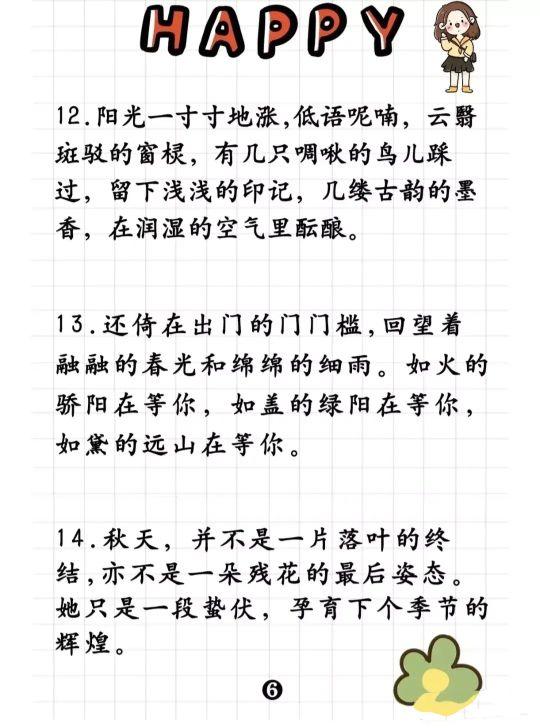 HAPPY
12.阳光一寸寸地涨,低语呢喃，云翳
斑驳的窗棂，有几只啁啾的鸟儿踩
过，留下浅浅的印记，几缕古韵的墨
香，在润湿的空气里酝酿。
13.还倚在出门的门门槛,回望着
融融的春光和绵绵的细雨。如火的
骄阳在等你，如盖的绿阳在等你，
如黛的远山在等你。
14.秋天，并不是一片落叶的终
结,亦不是一朵残花的最后姿态。
她只是一段蛰伏，孕育下个季节的
辉煌。
6